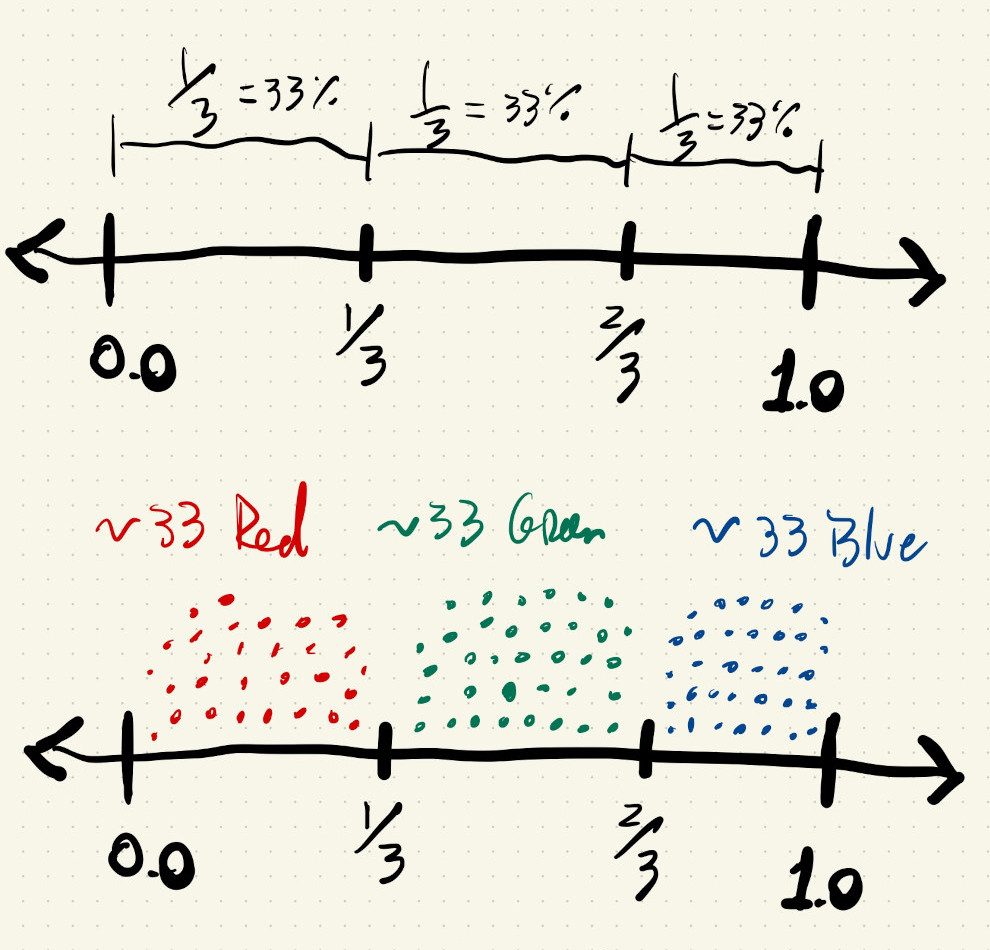 1/3 = 33% 1/3 = 33% 1/3 = 33%
0.0 1/3 2/3 1.0
~33 Red ~33 Green ~33 Blue
0.0 1/3 2/3 1.0